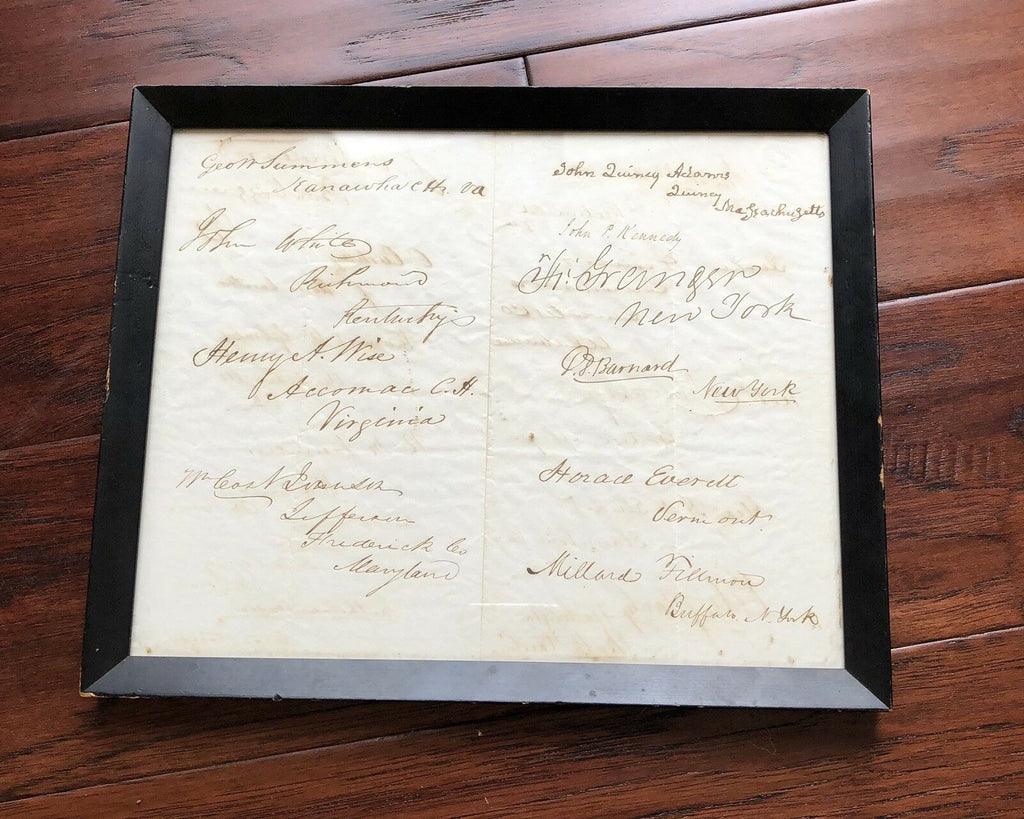 Geo W Summers
Kanawha C Hs. Va
John White
Richmond
Kentucky
Henry A. Wise
Accomac C. H.
Virginia
Wm Cost Johnson
Jefferson
Frederick Co
Maryland
John Quincy Adams
Quincy
Massachusetts
John P. Kennedy
Fr: Granger
New York
D. D. Barnard
New York
Horace Everett
Vermont
Millard Fillmore
Buffalo, N. York